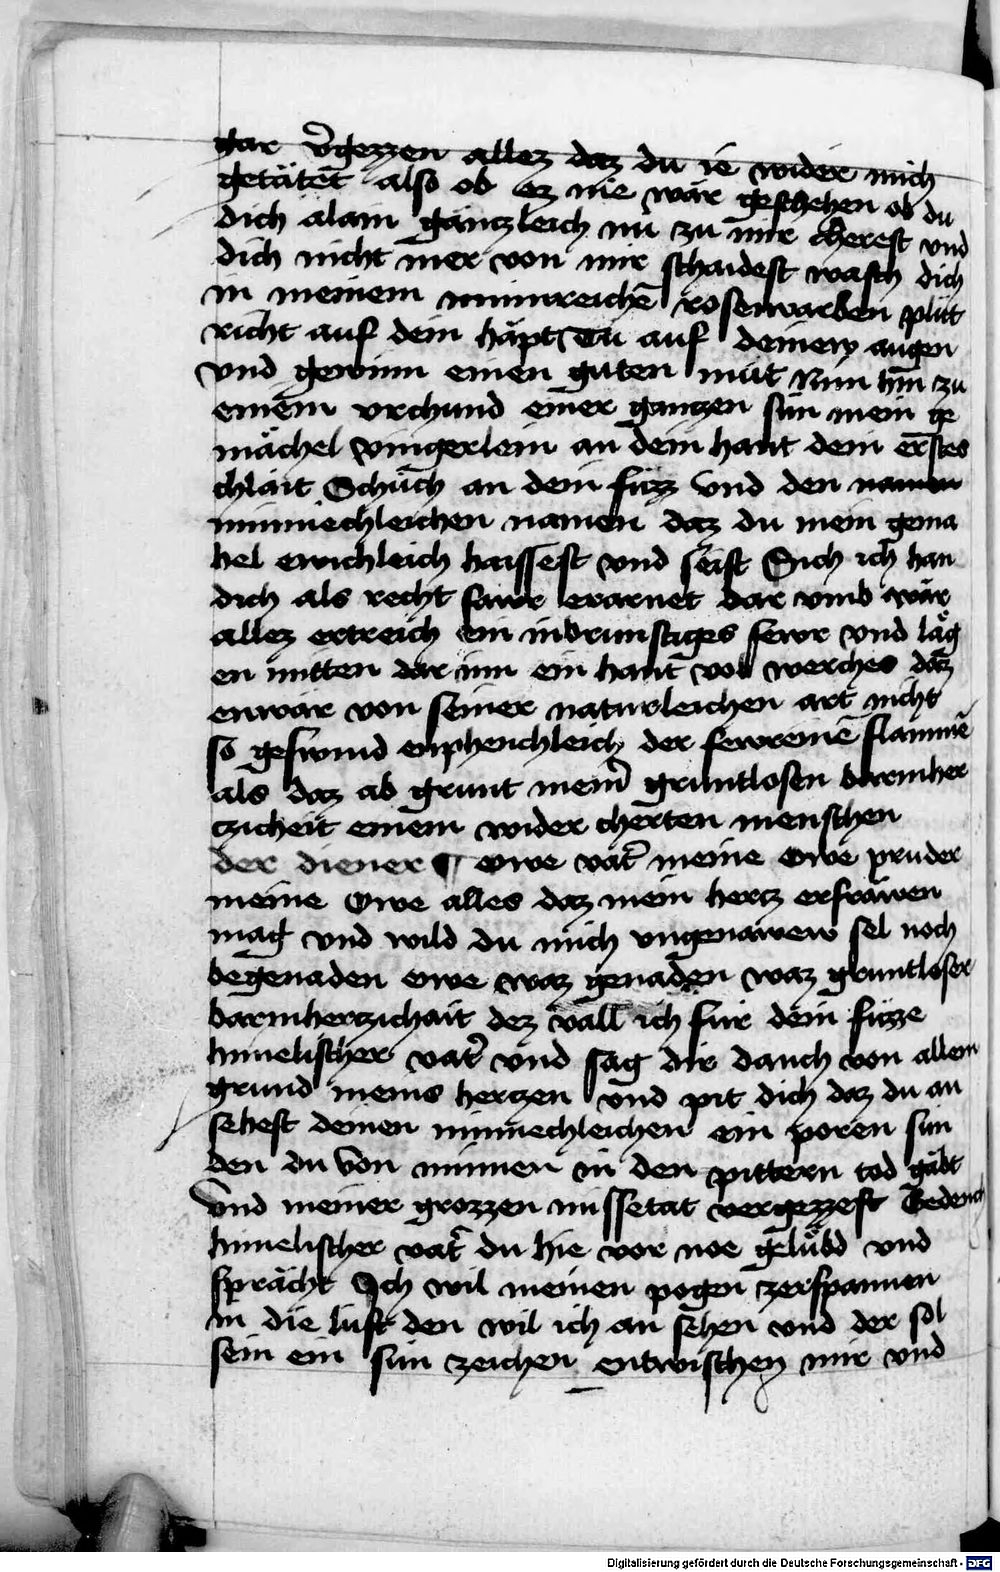 gar v̄gezzen allez daz du ie wider mich
getätēt also ob ez nie wär geschehen ob du
dich alain gänczleich nu zu mir cherest vnd
dich nicht mer von mir schaidest wasch dich
in meinem minnreichē rosenvarben plüt
richt auf dein häpt Tu auf deinew augen
vnd gewinn einen guten müt Nim hin zu
einem vrchund einer ganczen sün mein ge
mächel vingerlein an dein hant dein erstes
chlait Schuch an dein füzz vnd den namen
minnechleichen namen daz du mein gema
hel ewichleich haissest vnd seist Sich ich han
dich als recht sawr erarnet dar vmb wär
allez ertreich ein inbrunstiges fewr vnd läg
en mitten dar inn ein hant vol werches daz
enwär von seiner naturleichen art nicht
so geswind enphenchleich der fewreinē flammē
als daz ab grunt mein̄ gruntlosen barmher
czicheit einem wider cherten menschen
der diener ¶ Owe vat̄ meine Owe pruder
meine Owe alles daz mein hercz erfräwen
mag vnd wild du mich vngenāwew sel noch
begenaden Owe waz genaden waz gruntloser
barmherczichait dez vall ich für dein füzze
himelischer vat̄ vnd sag dir danch von allem
grund meins herczen vnd pit dich daz du an
sehest deinen minnechleichen ein poren sün
den du von minnen in den pittern tod gäbt
vnd meiner grozzen missetat vergezzest Gedench
himelischer vat̄ du hie vor noe gelübd vnd
sprächt Ich wil meinen pogen zerspannen
in die lüft den wil ich an sehen vnd der sol
sein ein sün zeichen entwischen mir vnd
Digitalisierung gefördert durch die Deutsche Forschungsgemeinschaft - DFG